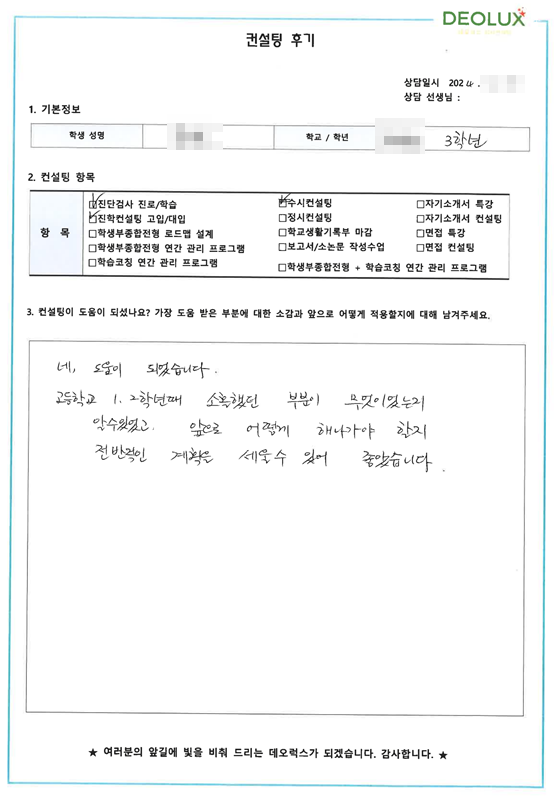 DEOLUX
컨설팅 후기
상담일시 2024.
상담 선생님 :
1. 기본정보
학생 성명 학교 / 학년 3학년
2. 컨설팅 항목
항 목
☑진단검사 진로/학습 ☑수시컨설팅 □자기소개서 특강
☑진학컨설팅 고입/대입 □정시컨설팅 □자기소개서 컨설팅
□학생부종합전형 로드맵 설계 □학교생활기록부 마감 □면접 특강
□학생부종합전형 연간 관리 프로그램 □보고서/소논문 작성수업 □면접 컨설팅
□학습코칭 연간 관리 프로그램 □학생부종합전형 + 학습코칭 연간 관리 프로그램
3. 컨설팅이 도움이 되셨나요? 가장 도움 받은 부분에 대한 소감과 앞으로 어떻게 적용할지에 대해 남겨주세요.
네, 도움이 되었습니다.
고등학교 1, 2학년때 소홀했던 부분이 무엇이었는지
알수있었고. 앞으로 어떻게 해나가야 할지
전반적인 계획을 세울수 있어 좋았습니다.
★ 여러분의 앞길에 빛을 비춰 드리는 데오럭스가 되겠습니다. 감사합니다. ★